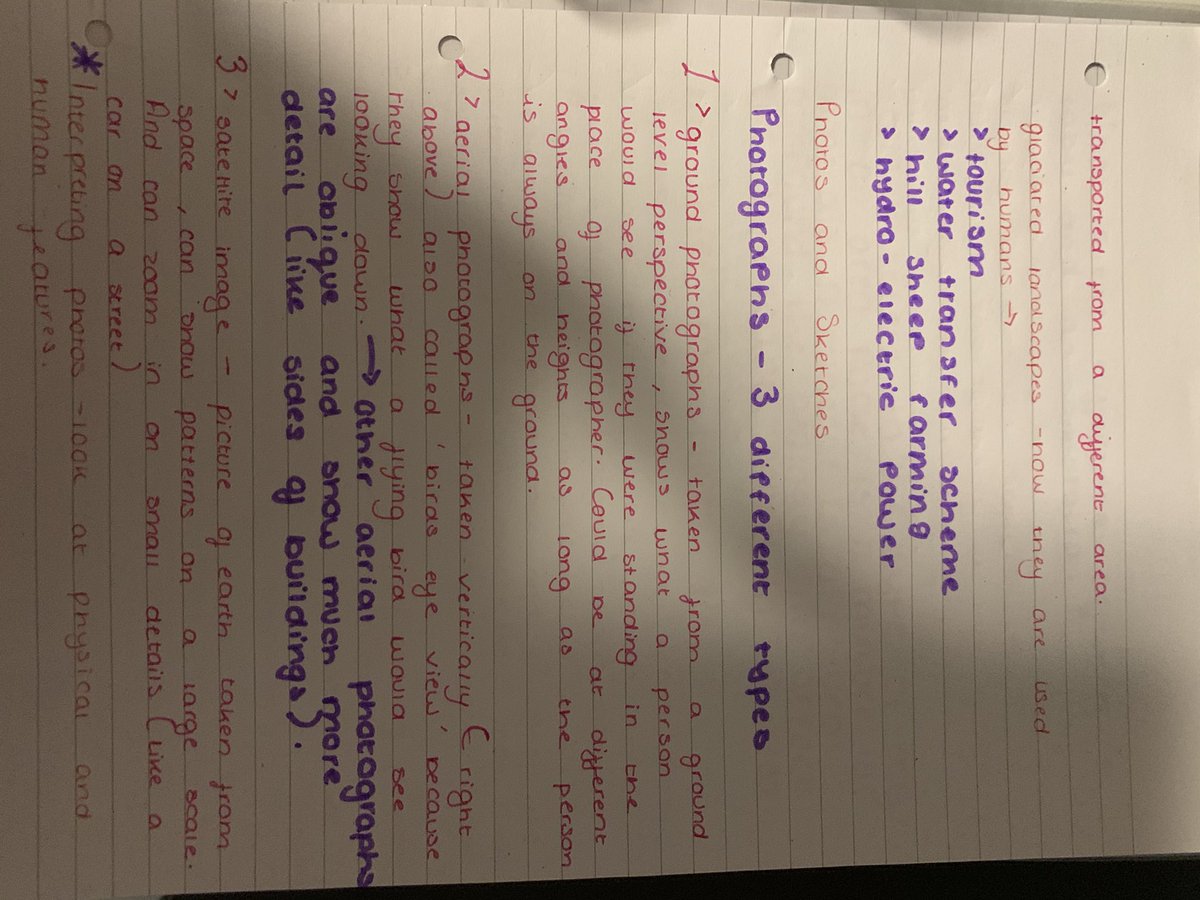 transported from a different area.
glaciated landscapes - how they are used
by humans →
> tourism
> water transfer scheme
> hill sheep farming
> hydro-electric power
Photos and Sketches
Photographs - 3 different types
1 > ground photographs - taken from a ground
level perspective, shows what a person
would see if they were standing in the
place of photographer. Could be at different
angles and heights as long as the person
is always on the ground.
2 > aerial photographs - taken vertically (right
above) also called 'birds eye view' because
they show what a flying bird would see
looking down. → other aerial photographs
are oblique and show much more
detail (like sides of buildings).
3 > satellite image - picture of earth taken from
space, can show patterns on a large scale.
And can zoom in on small details (like a
car on a street)
* Interpreting photos - look at physical and
human features.